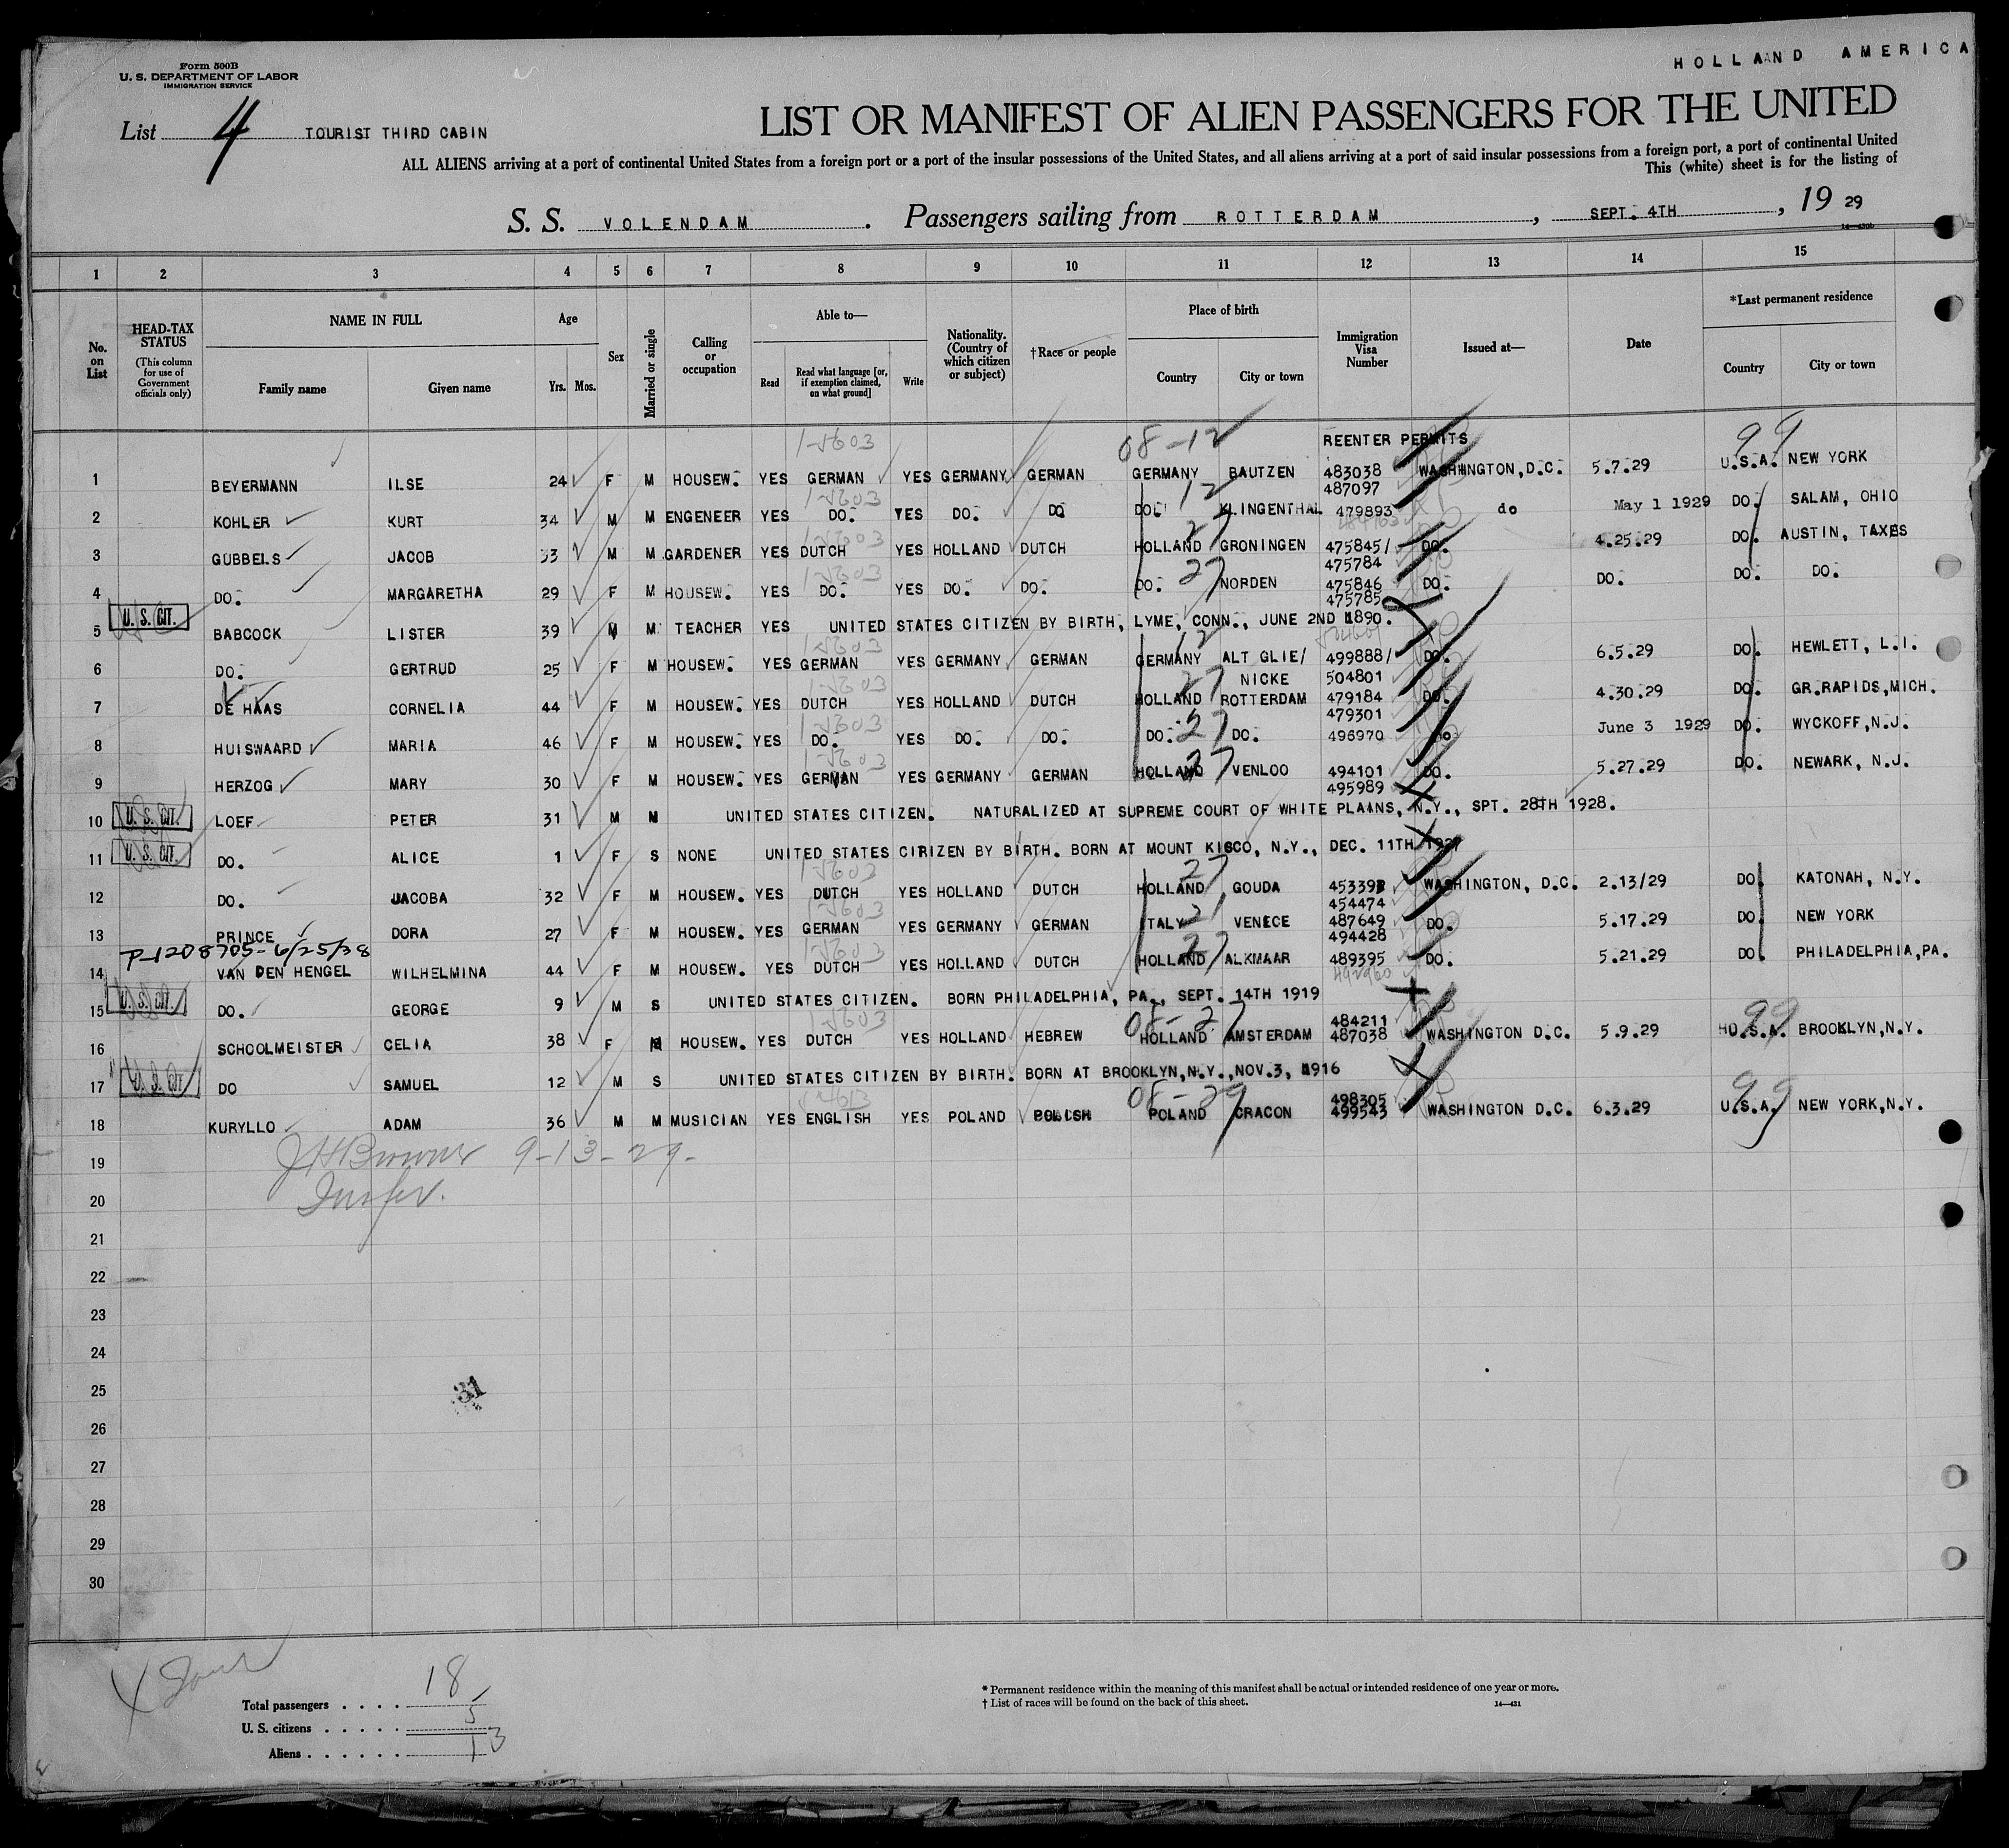 HOLLAND AMERICA
Form 500B
U. S. DEPARTMENT OF LABOR
IMMIGRATION SERVICE
List 4 TOURIST THIRD CABIN
LIST OR MANIFEST OF ALIEN PASSENGERS FOR THE UNITED
ALL ALIENS arriving at a port of continental United States from a foreign port or a port of the insular possessions of the United States, and all aliens arriving at a port of said insular possessions from a foreign port, a port of continental United
This (white) sheet is for the listing of
S. S. VOLENDAM. Passengers sailing from ROTTERDAM, SEPT. 4TH, 19 29
1 2 3 4 5 6 7 8 9 10 11 12 13 14 15
No. on List
HEAD-TAX STATUS
(This column for use of Government officials only)
NAME IN FULL
Family name Given name
Age
Yrs. Mos.
Sex
Married or single
Calling or occupation
Able to—
Read Read what language [or, if exemption claimed, on what ground] Write
Nationality. (Country of which citizen or subject)
†Race or people
Place of birth
Country City or town
Immigration Visa Number
Issued at—
Date
*Last permanent residence
Country City or town
08-12 REENTER PERMITS 99
1 BEYERMANN ILSE 24 F M HOUSEW. YES GERMAN YES GERMANY GERMAN GERMANY BAUTZEN 483038 487097 WASHINGTON, D.C. 5.7.29 U.S.A. NEW YORK
2 KOHLER KURT 34 M M ENGENEER YES DO. YES DO. DO DO. KLINGENTHAL 479893 do May 1 1929 DO. SALAM, OHIO
3 GUBBELS JACOB 33 M M GARDENER YES DUTCH YES HOLLAND DUTCH HOLLAND GRONINGEN 475845/ 475784 DO. 4.25.29 DO. AUSTIN, TAXES
4 DO. MARGARETHA 29 F M HOUSEW. YES DO. YES DO. DO. DO. NORDEN 475846 475785 DO. DO. DO. DO.
U. S. CIT.
5 BABCOCK LISTER 39 M M TEACHER YES UNITED STATES CITIZEN BY BIRTH, LYME, CONN., JUNE 2ND 1890.
6 DO. GERTRUD 25 F M HOUSEW. YES GERMAN YES GERMANY GERMAN GERMANY ALT GLIE/ NICKE 499888/ 504801 DO. 6.5.29 DO. HEWLETT, L.I.
7 DE HAAS CORNELIA 44 F M HOUSEW. YES DUTCH YES HOLLAND DUTCH HOLLAND ROTTERDAM 479184 479301 DO. 4.30.29 DO. GR.RAPIDS,MICH.
8 HUISWAARD MARIA 46 F M HOUSEW. YES DO. YES DO. DO. DO. DO. 496970 do June 3 1929 DO. WYCKOFF,N.J.
9 HERZOG MARY 30 F M HOUSEW. YES GERMAN YES GERMANY GERMAN HOLLAND VENLOO 494101 495989 DO. 5.27.29 DO. NEWARK, N.J.
U. S. CIT.
10 LOEF PETER 31 M M UNITED STATES CITIZEN. NATURALIZED AT SUPREME COURT OF WHITE PLAINS, N.Y., SPT. 28TH 1928.
U. S. CIT.
11 DO. ALICE 1 F S NONE UNITED STATES CITIZEN BY BIRTH. BORN AT MOUNT KISCO, N.Y., DEC. 11TH 1927
12 DO. JACOBA 32 F M HOUSEW. YES DUTCH YES HOLLAND DUTCH HOLLAND GOUDA 453393 454474 WASHINGTON, D.C. 2.13/29 DO. KATONAH, N.Y.
13 PRINCE DORA 27 F M HOUSEW. YES GERMAN YES GERMANY GERMAN ITALY VENECE 487649 494428 DO. 5.17.29 DO. NEW YORK
P-1208705-6/25/38
14 VAN DEN HENGEL WILHELMINA 44 F M HOUSEW. YES DUTCH YES HOLLAND DUTCH HOLLAND ALKMAAR 489395 DO. 5.21.29 DO. PHILADELPHIA,PA.
U. S. CIT.
15 DO. GEORGE 9 M S UNITED STATES CITIZEN. BORN PHILADELPHIA, PA., SEPT. 14TH 1919
16 SCHOOLMEISTER CELIA 38 F M HOUSEW. YES DUTCH YES HOLLAND HEBREW HOLLAND AMSTERDAM 484211 487038 WASHINGTON D.C. 5.9.29 U.S.A. BROOKLYN,N.Y.
U. S. CIT.
17 DO SAMUEL 12 M S UNITED STATES CITIZEN BY BIRTH. BORN AT BROOKLYN,N.Y.,NOV.3, 1916
18 KURYLLO ADAM 36 M M MUSICIAN YES ENGLISH YES POLAND POLISH POLAND CRACON 498305 499543 WASHINGTON D.C. 6.3.29 U.S.A. NEW YORK,N.Y.
19 9-13-29-
20
21
22
23
24
25
31
26
27
28
29
30
Total passengers . . . . 18
U. S. citizens . . . . . 5
Aliens . . . . . . 13
* Permanent residence within the meaning of this manifest shall be actual or intended residence of one year or more.
† List of races will be found on the back of this sheet. 14—431